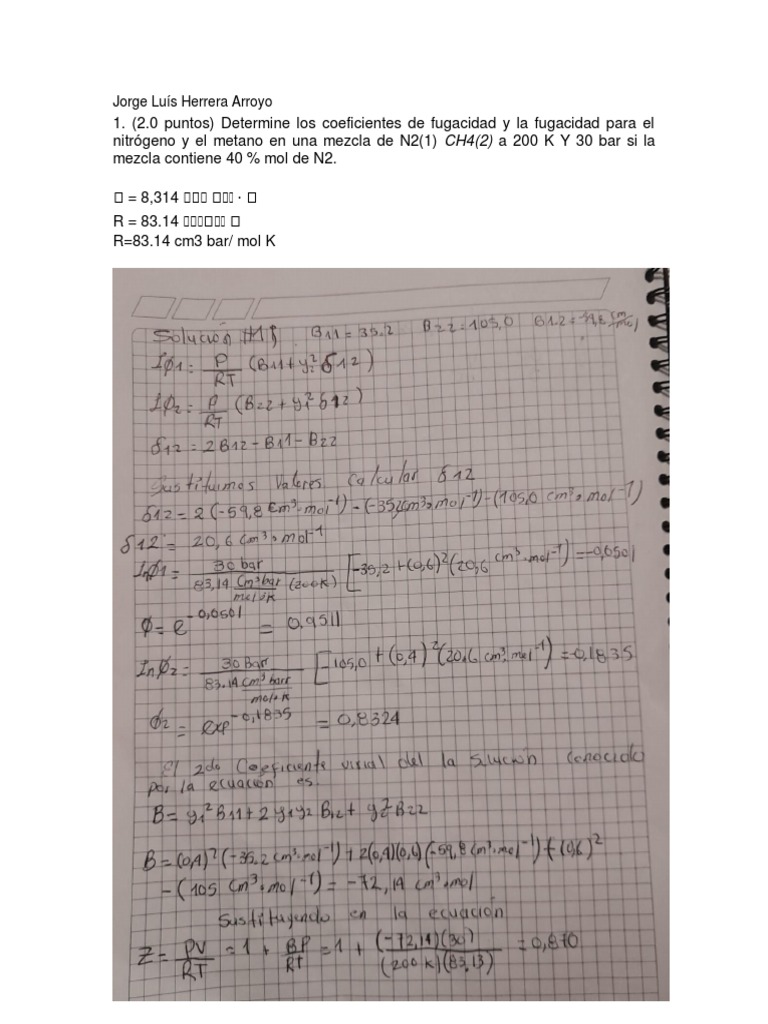 Jorge Luís Herrera Arroyo
1. (2.0 puntos) Determine los coeficientes de fugacidad y la fugacidad para el
nitrógeno y el metano en una mezcla de N2(1) CH4(2) a 200 K Y 30 bar si la
mezcla contiene 40 % mol de N2.
▯ = 8,314 ▯▯▯ ▯▯▯ · ▯
R = 83.14 ▯▯▯▯▯▯▯ ▯
R=83.14 cm3 bar/ mol K
Solución #1 B11 = 35.2 B22 = 105,0 B12 = -59,8 cm/mol
Iϕ1 = P/RT (B11 + y2² δ12)
Iϕ2 = P/RT (B22 + y1² δ12)
δ12 = 2B12 - B11 - B22
Sustituimos Valores Calcular δ12
δ12 = 2(-59,8 cm³·mol⁻¹) - (-35,2 cm³·mol⁻¹) - (105,0 cm³·mol⁻¹)
δ12 = 20,6 cm³·mol⁻¹
Inϕ1 = 30 bar / 83,14 cm³bar/mol·K (200K) [-35,2 + (0,6)² (20,6 cm³·mol⁻¹) = -0,0501
ϕ = e^-0,0501 = 0,9511
Inϕ2 = 30 Barr / 83.14 cm³ barr/mol·K [-105,0 + (0,4)² (20,6 cm³·mol⁻¹) = -0,1835
ϕ2 = exp^-0,1835 = 0,8324
El 2do Coeficiente virial del la Solución Conocido
por la ecuación es.
B = y1² B11 + 2 y1 y2 B12 + y2² B22
B = (0,4)² (-35.2 cm³·mol⁻¹) + 2(0,4)(0,6) (-59,8 cm³·mol⁻¹) + (0,6)²
- (105 cm³·mol⁻¹) = -72,14 cm³·mol
Sustituyendo en la ecuación
Z = PV/RT = 1 + BP/RT = 1 + (-72,14)(30)/(200 K)(83,13) = 0,870